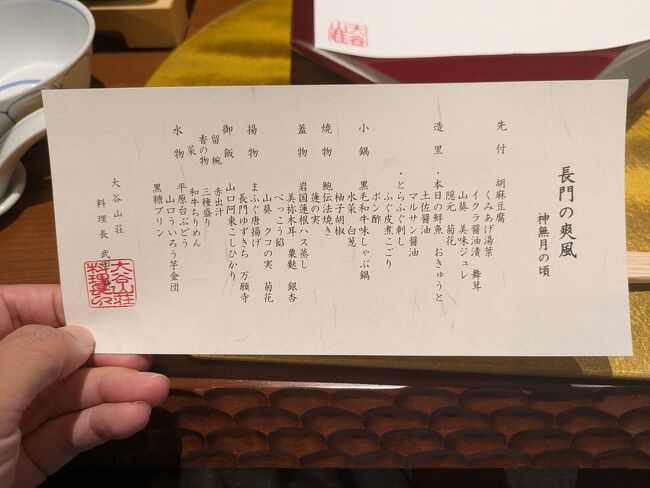 長門の爽風
神無月の頃
先付　胡麻豆腐
くみあげ湯葉
イクラ醤油漬　舞茸
山葵　美味ジュレ
隠元　菊花
造里　・本日の鮮魚　おきゅうと
土佐醤油
マルサン醤油
・とらふぐ刺し
ふぐ皮煮こごり
ポン酢
小鍋　黒毛和牛味しゃぶ鍋
水菜　白葱
柚子胡椒
焼物　鮑伝法焼き
蓮の実
蓋物　岩国蓮根ハス蒸し
美祢木耳　粟麩　銀杏
べっこう餡
山葵　クコの実　菊花
揚物　まふぐ唐揚げ
長門ゆずきち　万願寺
御飯　山口阿東こしひかり
留椀　赤出汁
香の物　三種盛り
菜　和牛ちりめん
水物　平原台ぶどう
山口ういろう芋金団
黒糖プリン
大谷山荘
料理長　武
大谷山荘
料理長
大谷
山荘